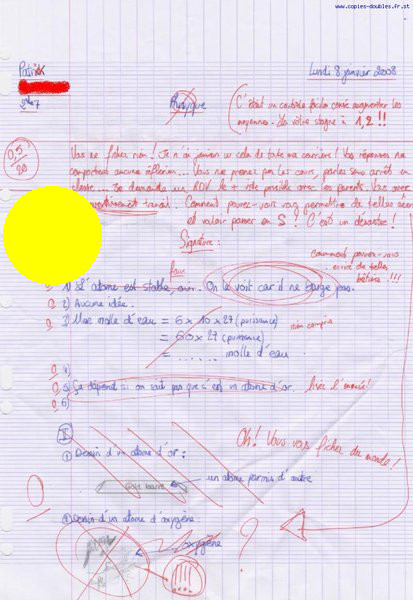 www.copies-doubles.fr.st
Patrick
Lundi 8 janvier 2008
2nde 7
Physique
C'était un contrôle facile censé augmenter les
moyennes. La vôtre stagne à 1,2 !!
0,5
20
Vous ne fichez rien ! Je n'ai jamais vu cela de toute ma carrière ! Vos réponses ne
comportent aucune réflexion... Vous ne prenez pas les cours, parlez sans arrêt en
classe... Je demande un RDV le + vite possible avec les parents. Vous avez
avertissement travail. Comment pouvez-vous vous permettre de telles
et vouloir passer en S ? C'est un désastre !
Signature :
Comment pouvez-vous
écrire de telles
bêtises !!!
faux
0 1) L'atome est stable, oui. On le voit car il ne bouge pas.
0 2) Aucune idée.
0 3) Une molle d'eau = 6 x 10 x 27 (puissance)
= 60 x 27 (puissance)
= ...... molle d'eau
0 4)
0 5) Ça dépend si on sait pas que c'est un atome d'or.
0 6)
II
Oh ! Vous vous fichez du monde !
1) Dessin d'un atome d'or :
Gold barre
un atome parmis d'autre
2) Dessin d'un atome d'oxygène :
oxygène
?
!!!!
0